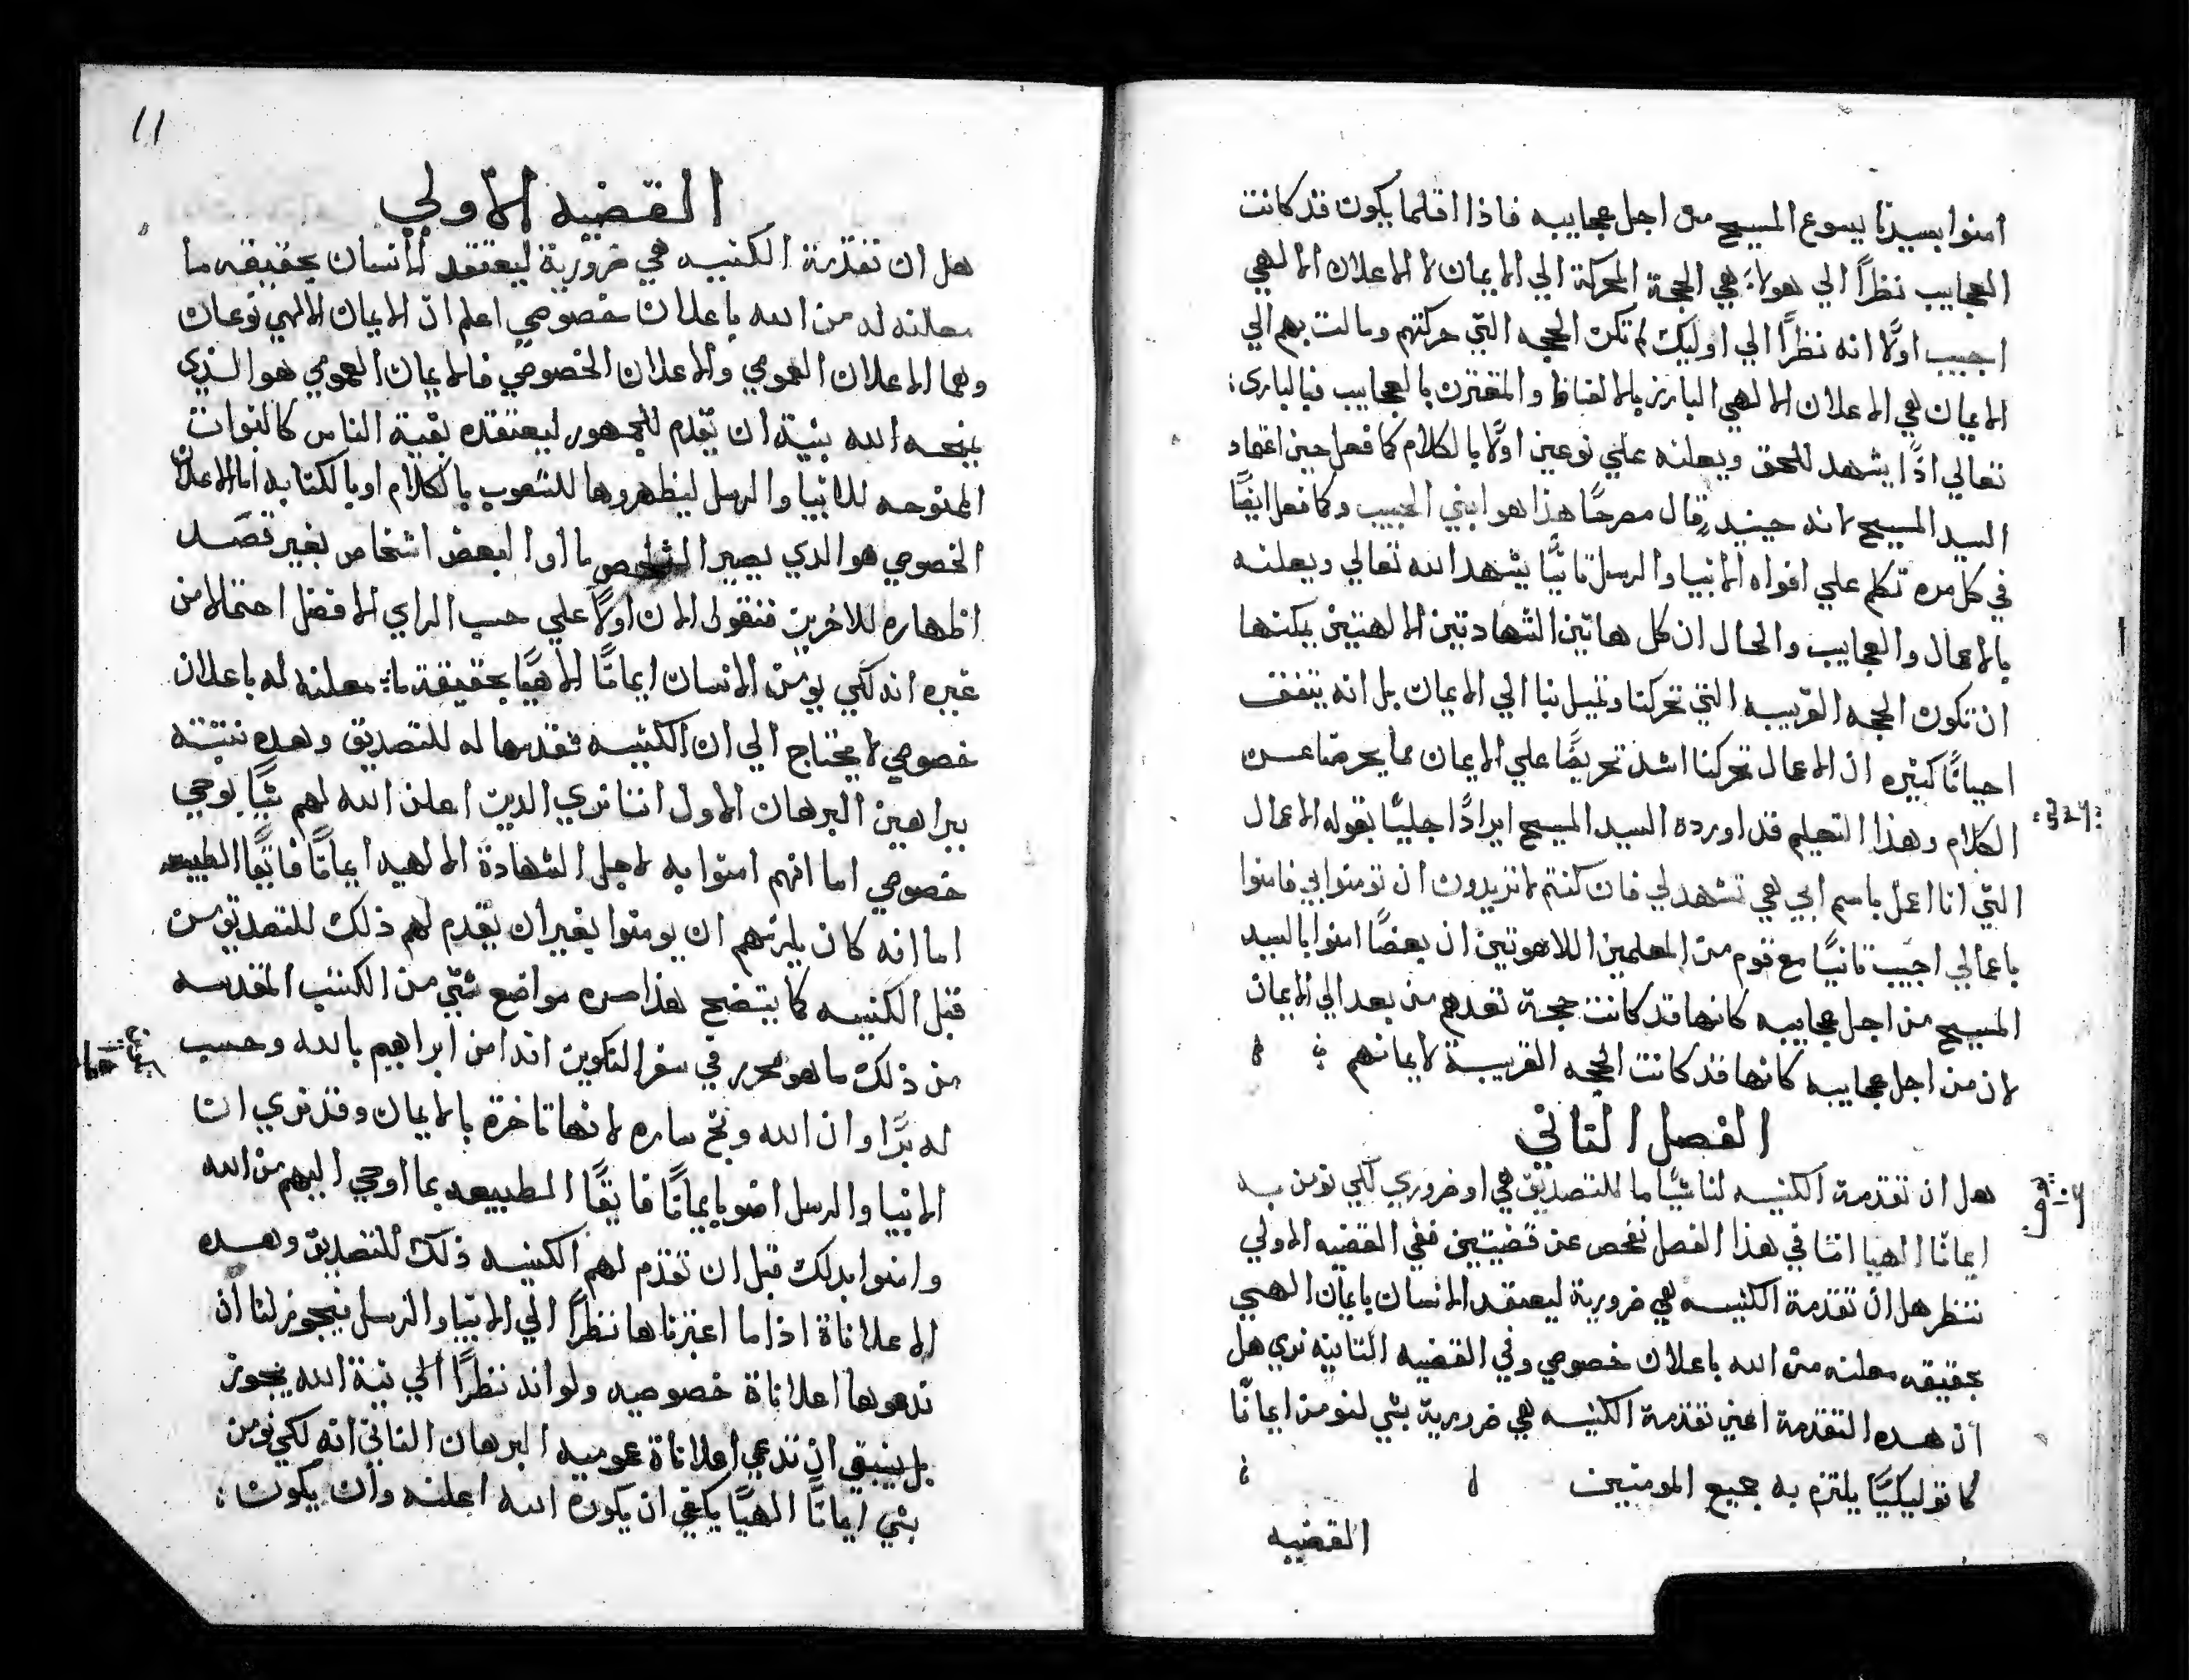 امنوا بسيدنا يسوع المسيح من اجل عجايبه فاذا اقلما يكون قد كانت
العجايب نظرًا الي هولاء هي الحجة المحركة الي الايمان لا الاعلان الالهي
اجيب اولًا انه نظرًا الي اوليك لم تكن الحجه التي حركتهم ومالت بهم الي
الايمان هي الاعلان الالهي البارز بالالفاظ والمقترن بالعجايب فالباري:
تعالي اذًا يشهد للحق ويعلنه علي نوعين اولًا بالكلام كما فعل حين اعتماد
السيد المسيح لانه حينيدٍ قال مصرحًا هذا هو ابني الحبيب وكما فعل ايضًا
في كل مره تكلم علي افواه الانبيا والرسل ثانيًا يشهد الله تعالي ويعلنه
بالاعمال والعجايب والحال ان كل هاتين الشهادتين الالهيتين يمكنها
ان تكون الحجه القريبه التي تحركنا وتميل بنا الي الايمان بل انه يتفق
احيانًا كثيره ان الاعمال تحركنا اشد تحريضًا علي الايمان مما يحرضنا عسن
الكلام وهذا التعليم قد اورده السيد المسيح ايرادًا جليًا بقوله الاعمال
التي انا اعمل باسم ابي هي تشهد لي فان كنتم لا تريدون ان تومنوا بي فامنوا
باعمالي اجيب ثانيًا مع قوم من المعلمين اللاهوتيين ان بعضًا امنوا بالسيد
المسيح من اجل عجايبه كانها قد كانت حجة تعدهم من بعد الي الايمان
لا ن من اجل عجايبه كانها قد كانت الحجه القريبة لايمانهم
الفصل الثاني
هل ان تقدمة الكنيسه لنا شيًا ما للتصديق هي امر ضروري لكي نومن به
ايمانًا الهيا اننا في هذا الفصل نفحص عن قضيتين ففي القضيه الاولي
ننظر هل ان تقدمة الكنيسه هي ضرورية ليعتقد الانسان بايمان الهي
بحقيقه معلنه من الله باعلان خصوصي وفي القضيه الثانيه نري هل
ان هده التقدمة اعني تقدمة الكنيسه هي ضرورية بشي لنومن ايمانًا
كاتوليكيًا يلتزم به جميع المومنين
القضيه
١١
القضيه الاولي
هل ان تقدمة الكنيسه هي ضرورية ليعتقد الانسان بحقيقه ما
معلنه له من الله باعلان خصوصي اعلم ان الايمان الالهي نوعان
وهما الاعلان العمومي والاعلان الخصوصي فالايمان العمومي هو الذي
يمنحه الله بنية ان يقدم للجمهور ليعتقده بقية الناس كالنبوات
الممنوحه للانبيا والرسل ليظهروها للشعوب بالكلام او بالكتابه اما الاعلان
الخصوصي هو الدي يصير لشخص ما او لبعض اشخاص بغير قصد
اظهاره للاخرين فنقول الان اولًا علي حسب الراي الافضل احتمالا من
غيره انه لكي يومن الانسان ايمانًا الاهيًا بحقيقة ما معلنه له باعلان
خصوصي لا يحتاج الي ان الكنيسه تقدمها له للتصديق وهده نثبته
ببراهين البرهان الاول اننا نري الدين اعلن الله لهم شيًا بوحي
خصوصي اما انهم امنوا به لاجل الشهادة الالهيه ايمانًا فايقًا الطبيعه
اما انه كان يلزمهم ان يومنوا بغير ان يقدم لهم ذلك للتصديق من
قبل الكنيسه كما يتضح هذا من مواضع شتي من الكتب المقدسه
من ذلك ما هو محرر في سفر التكوين انه امن ابراهيم بالله وحسب
له برًا وان الله وبخ ساره لانها تاخرة بالايمان وقد نري ان
الانبيا والرسل امنو بايمانًا فايقًا الطبيعه بما اوحي اليهم من الله
وامنوا بدلك قبل ان تقدم لهم الكنيسه ذلك للتصديق وهده
الاعلاناة اذا ما اعتبرناها نظرًا الي الانبيا والرسل فيجوز لنا ان
ندعوها اعلاناة خصوصيه ولو انه نظرًا الي نية الله يجوز
بل ينبغي ان تدعي اعلاناة عموميه البرهان الثاني انه لكي نومن
بشي ايمانًا الهيًا يكفي ان يكون الله اعلنه وان يكون: